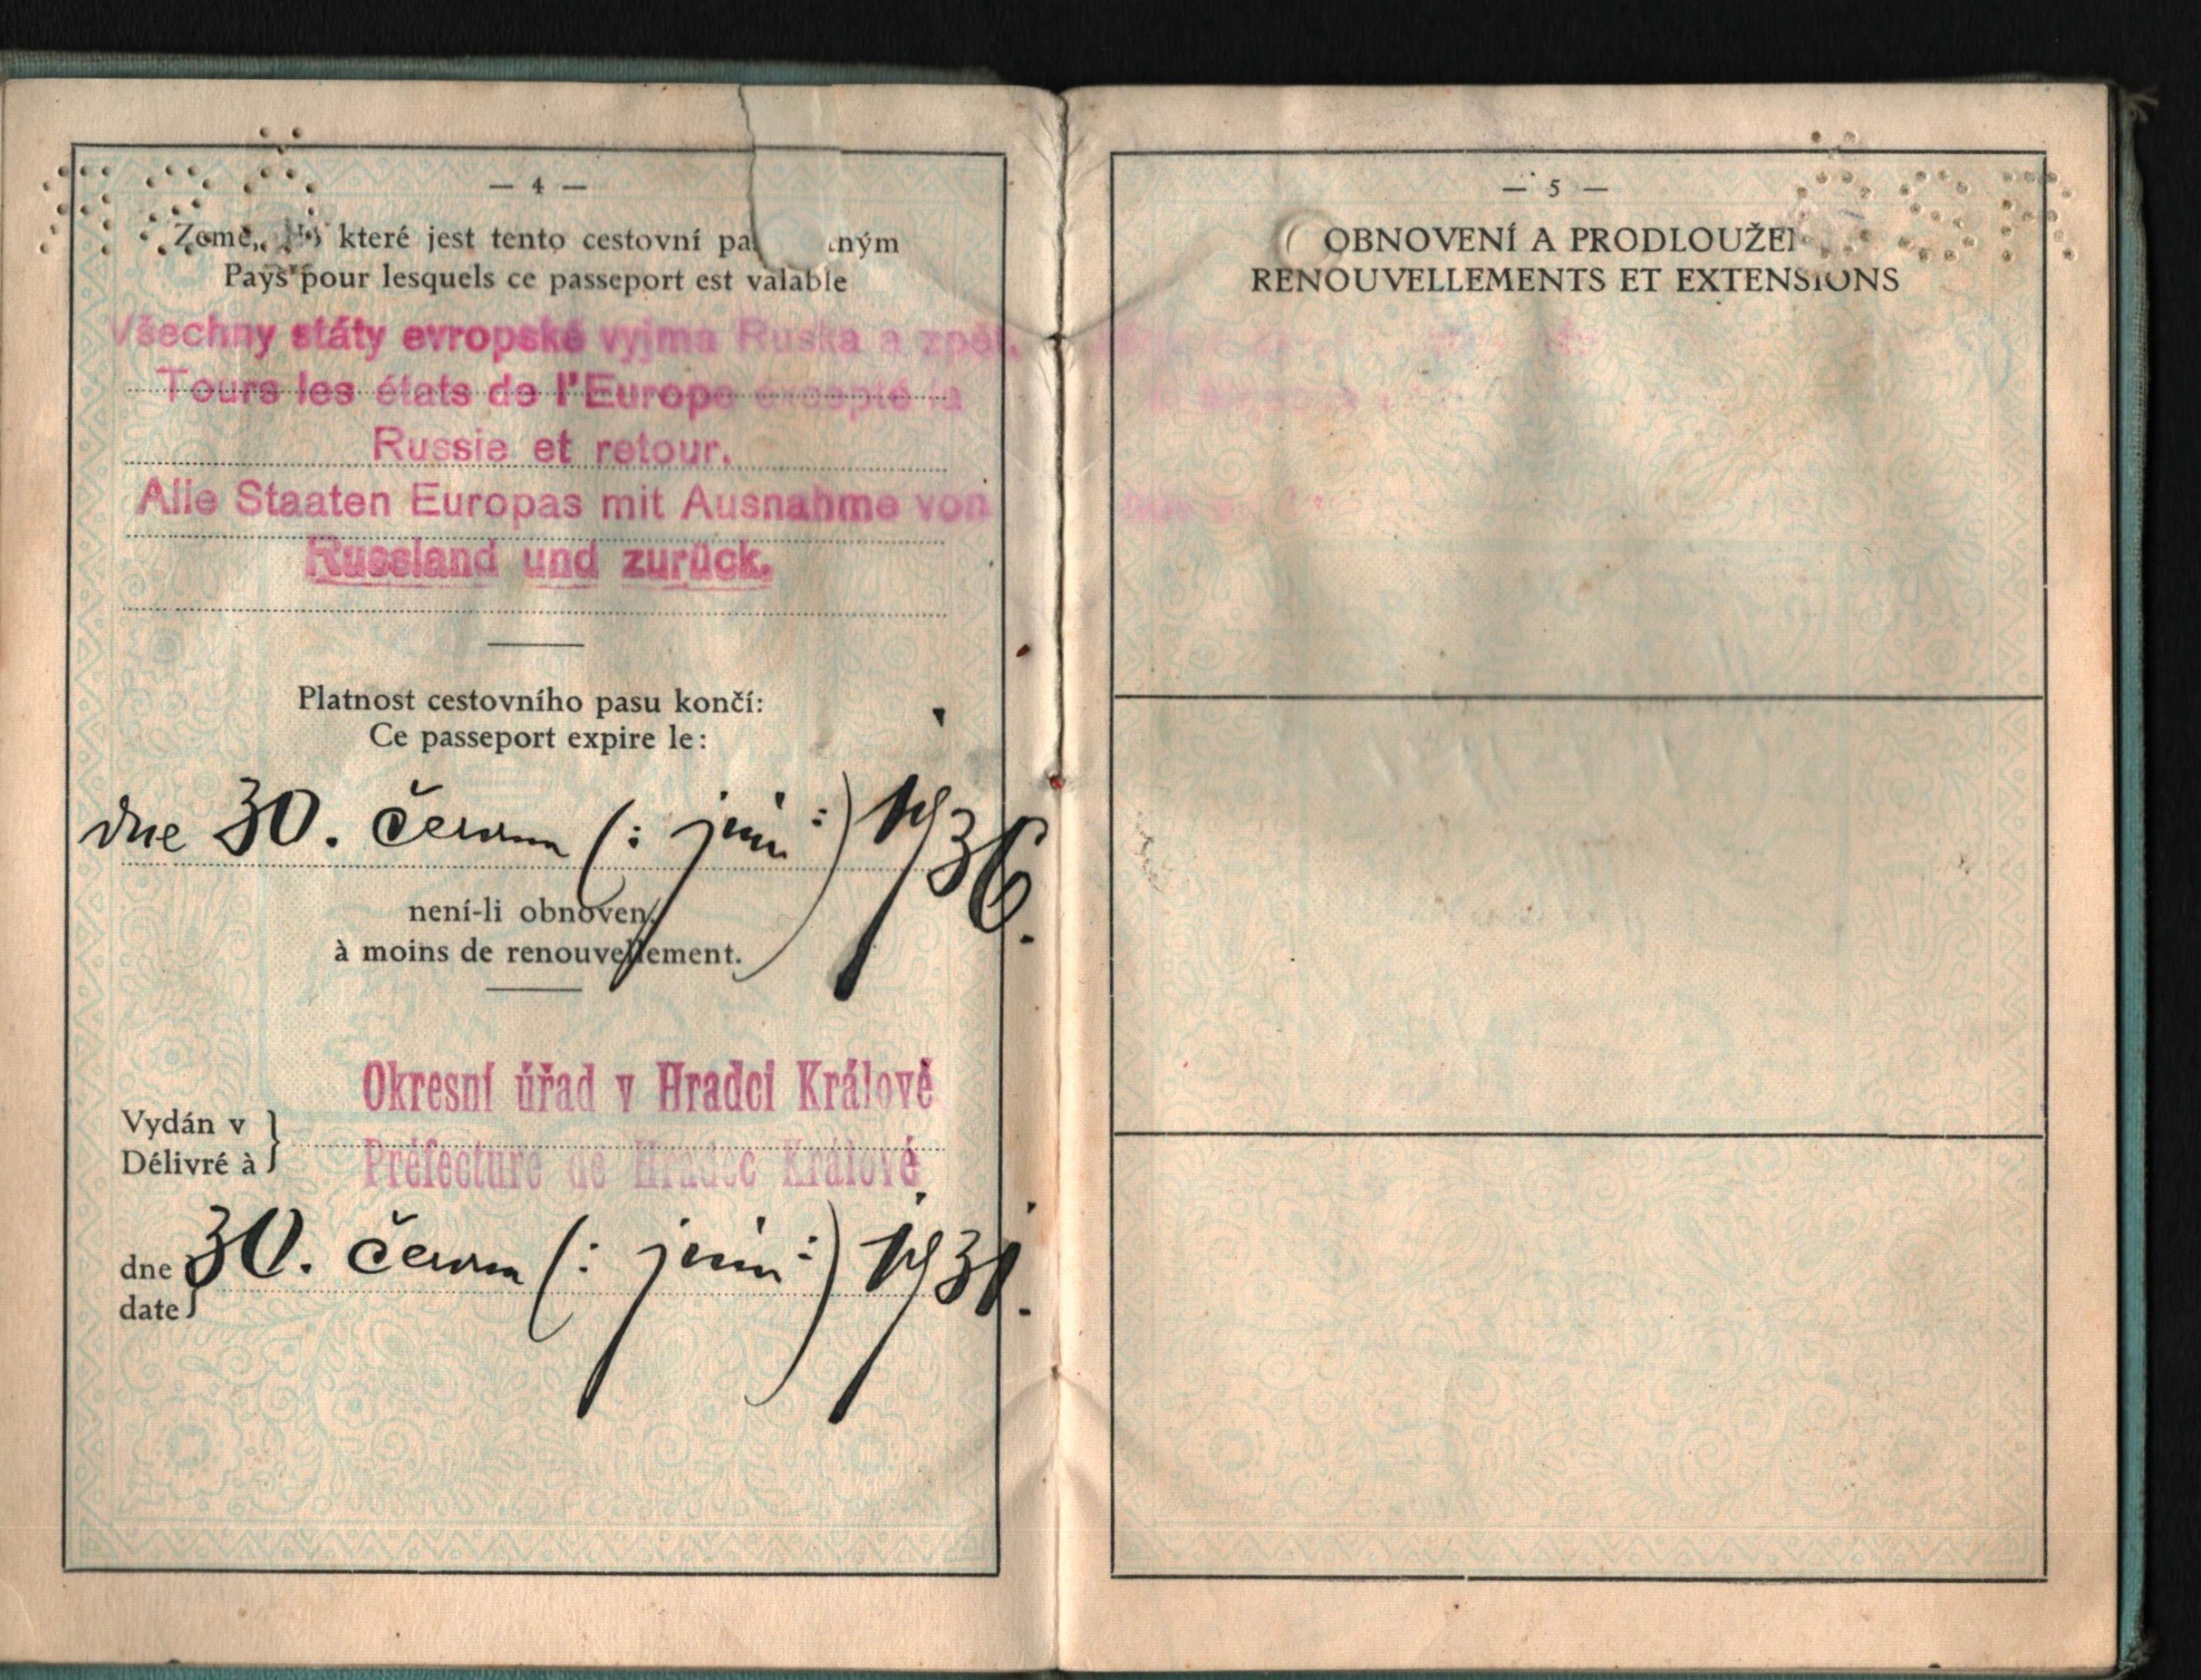 — 4 —
Země, které jest tento cestovní
Pays pour lesquels ce passeport est valable
Všechny státy evropské vyjma Ruska a zpět.
Tours les états de l'Europe excepté la
Russie et retour.
Alle Staaten Europas mit Ausnahme von
Russland und zurück.
Platnost cestovního pasu končí:
Ce passeport expire le:
dne 30. června (: juin :) 1936.
není-li obnoven.
à moins de renouvellement.
Okresní úřad v Hradci Králové
Vydán v
Délivré à
Préfecture de Hradec Králové
dne 30. června (: juin :) 1931.
date
— 5 —
OBNOVENÍ A
RENOUVELLEMENTS ET EXTENSIONS